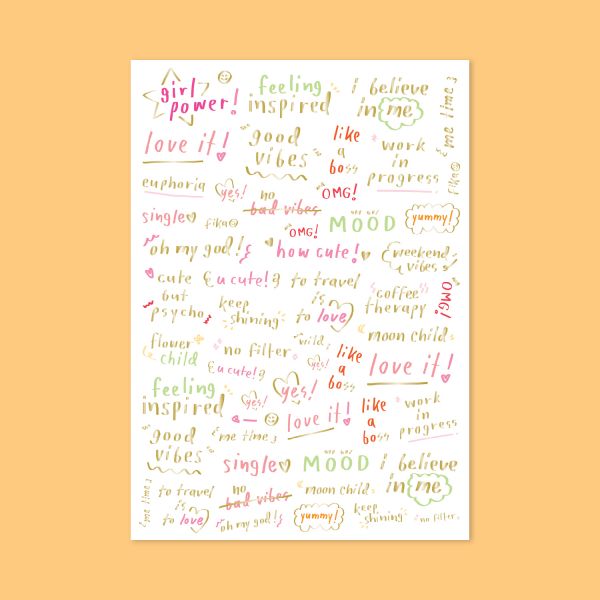 girl
power!
feeling
inspired
i believe
in me
{me time}
love it!
"good
vibes"
like
a
boss
work
in
progress
fika
euphoria
yes!
no
bad vibes
OMG!
single
fika
OMG!
MOOD
yummy!
oh my god!
how cute!
{weekend
vibes}
cute
but
psycho
{u cute!}
to travel
is
to love
"coffee"
therapy
OMG!
keep
shining
moon child
flower
child
no filter
wild
yes!
like
a
boss
love it!
{u cute!}
feeling
inspired
yes!
yes!
love it!
like
a
boss
work
in
progress
"good
vibes"
{me time}
single
MOOD
i believe
in me
{me time}
to travel
is
to love
no
bad vibes
moon child
oh my god!
yummy!
keep
shining
no filter